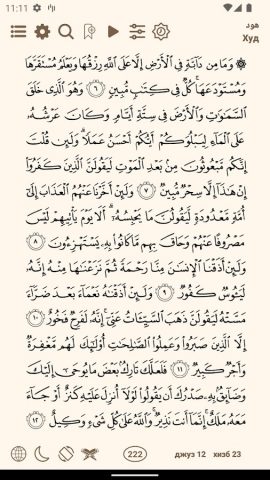 11:11
هود
Худ
۞ وَمَا مِن دَآبَّةٍ فِي ٱلْأَرْضِ إِلَّا عَلَى ٱللَّهِ رِزْقُهَا وَيَعْلَمُ مُسْتَقَرَّهَا
وَمُسْتَوْدَعَهَا ۚ كُلٌّ فِي كِتَٰبٍ مُّبِينٍ ٦ وَهُوَ ٱلَّذِي خَلَقَ
ٱلسَّمَٰوَٰتِ وَٱلْأَرْضَ فِي سِتَّةِ أَيَّامٍ وَكَانَ عَرْشُهُۥ
عَلَى ٱلْمَآءِ لِيَبْلُوَكُمْ أَيُّكُمْ أَحْسَنُ عَمَلًا ۗ وَلَئِن قُلْتَ
إِنَّكُم مَّبْعُوثُونَ مِنۢ بَعْدِ ٱلْمَوْتِ لَيَقُولَنَّ ٱلَّذِينَ كَفَرُوٓا۟
إِنْ هَٰذَآ إِلَّا سِحْرٌ مُّبِينٌ ٧ وَلَئِنْ أَخَّرْنَا عَنْهُمُ ٱلْعَذَابَ إِلَىٰٓ
أُمَّةٍ مَّعْدُودَةٍ لَّيَقُولُنَّ مَا يَحْبِسُهُۥٓ ۗ أَلَا يَوْمَ يَأْتِيهِمْ لَيْسَ
مَصْرُوفًا عَنْهُمْ وَحَاقَ بِهِم مَّا كَانُوا۟ بِهِۦ يَسْتَهْزِءُونَ ٨
وَلَئِنْ أَذَقْنَا ٱلْإِنسَٰنَ مِنَّا رَحْمَةً ثُمَّ نَزَعْنَٰهَا مِنْهُ إِنَّهُۥ
لَيَـُٔوسٌ كَفُورٌ ٩ وَلَئِنْ أَذَقْنَٰهُ نَعْمَآءَ بَعْدَ ضَرَّآءَ
مَسَّتْهُ لَيَقُولَنَّ ذَهَبَ ٱلسَّيِّـَٔاتُ عَنِّيٓ ۚ إِنَّهُۥ لَفَرِحٌ فَخُورٌ ١٠
إِلَّا ٱلَّذِينَ صَبَرُوا۟ وَعَمِلُوا۟ ٱلصَّٰلِحَٰتِ أُو۟لَٰٓئِكَ لَهُم مَّغْفِرَةٌ
وَأَجْرٌ كَبِيرٌ ١١ فَلَعَلَّكَ تَارِكٌۢ بَعْضَ مَا يُوحَىٰٓ إِلَيْكَ
وَضَآئِقٌۢ بِهِۦ صَدْرُكَ أَن يَقُولُوا۟ لَوْلَآ أُنزِلَ عَلَيْهِ كَنزٌ أَوْ جَآءَ
مَعَهُۥ مَلَكٌ ۚ إِنَّمَآ أَنتَ نَذِيرٌ ۚ وَٱللَّهُ عَلَىٰ كُلِّ شَيْءٍ وَكِيلٌ ١٢
222
джуз 12 хизб 23